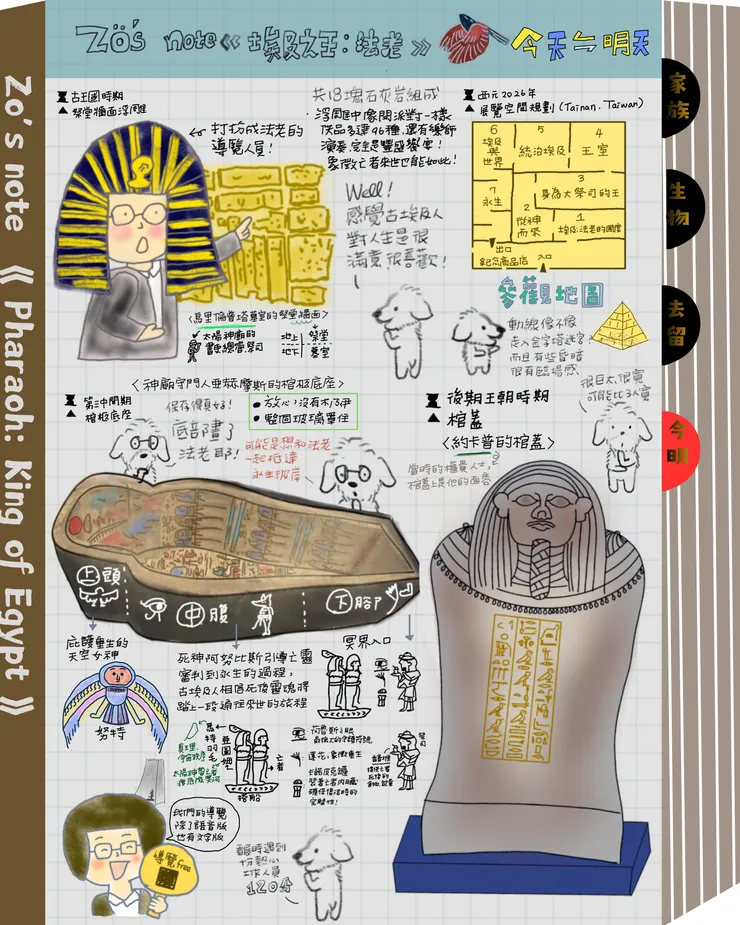 Zo's note 《 Pharaoh: King of Egypt 》
Zö's note 《 埃及之王：法老 》
今天⇆明天
家族
生物
去留
今明
古王國時期
祭堂牆面浮雕
打扮成法老的
導覽人員！
共18塊石灰岩組成
浮雕中像開派對一樣
供品多達96種，還有樂師
演奏，完全是豐盛饗宴！
象徵亡者來世也能如此！
Well！
感覺古埃及人
對人生是很
滿意，很喜歡！
太陽神廟的
書吏總管，祭司
地上
地下
祭堂
墓室
西元2026年
展覽空間規劃 (Tainan, Taiwan)
6
埃及
與
世界
5
統治埃及
4
王室
3
身為大祭司的王
7
永生
2
從神
而榮
1
埃及：法老的國度
出口
紀念商品店
入口
參觀地圖
動線像不像
走入金字塔迷宮
而且有些昏暗
很有臨場感
〈神廟守門人亞赫摩斯的棺柩底座〉
第三中間期
棺柩底座
保存得真好！
底部畫了
法老耶！
整個玻璃罩住
可能是想和法老
一起抵達
永生彼岸
後期王朝時期
棺蓋
〈約卡普的棺蓋〉
當時的權貴人士，
棺蓋上是他的面容
很巨大，很寬
可能比3人寬
上 頭
中 腹
下 腳
庇護重生的
天空女神
努特
死神阿努比斯引導亡靈
審判到永生的過程，
古埃及人相信死後靈魂將
踏上一段通往來世的旅程
冥界入口
瑪
特
羽
毛
真理、
宇宙秩序
亡
者
荷魯斯之眼
蓮花：象徵重生
祭司
搭船
我們的導覽
除了語音版
也有文字版
導覽Free
看展時遇到
十分熱心
工作人員
120分